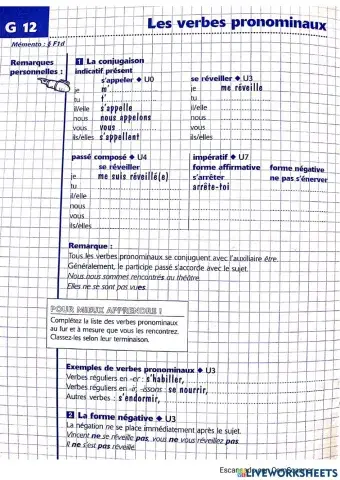 G 12
Les verbes pronominaux
Mémento : § F1d
Remarques
personnelles :
1 La conjugaison
indicatif présent
s'appeler ◆ U0
je m'
tu t'
il/elle s'appelle
nous nous appelons
vous vous
ils/elles s'appellent
se réveiller ◆ U3
je me réveille
tu
il/elle
nous
vous
ils/elles
passé composé ◆ U4
se réveiller
je me suis réveillé(e)
tu
il/elle
nous
vous
ils/elles
impératif ◆ U7
forme affirmative forme négative
s'arrêter ne pas s'énerver
arrête-toi
Remarque :
Tous les verbes pronominaux se conjuguent avec l'auxiliaire être.
Généralement, le participe passé s'accorde avec le sujet.
Nous nous sommes rencontrés au théâtre.
Elles ne se sont pas vues.
POUR MIEUX APPRENDRE !
Complétez la liste des verbes pronominaux
au fur et à mesure que vous les rencontrez.
Classez-les selon leur terminaison.
Exemples de verbes pronominaux ◆ U3
Verbes réguliers en -er : s'habiller,
Verbes réguliers en -ir, -issons : se nourrir,
Autres verbes : s'endormir,
2 La forme négative ◆ U3
La négation ne se place immédiatement après le sujet.
Vincent ne se réveille pas, vous ne vous réveillez pas.
Il ne s'est pas réveillé.
LIVEWORKSHEETS